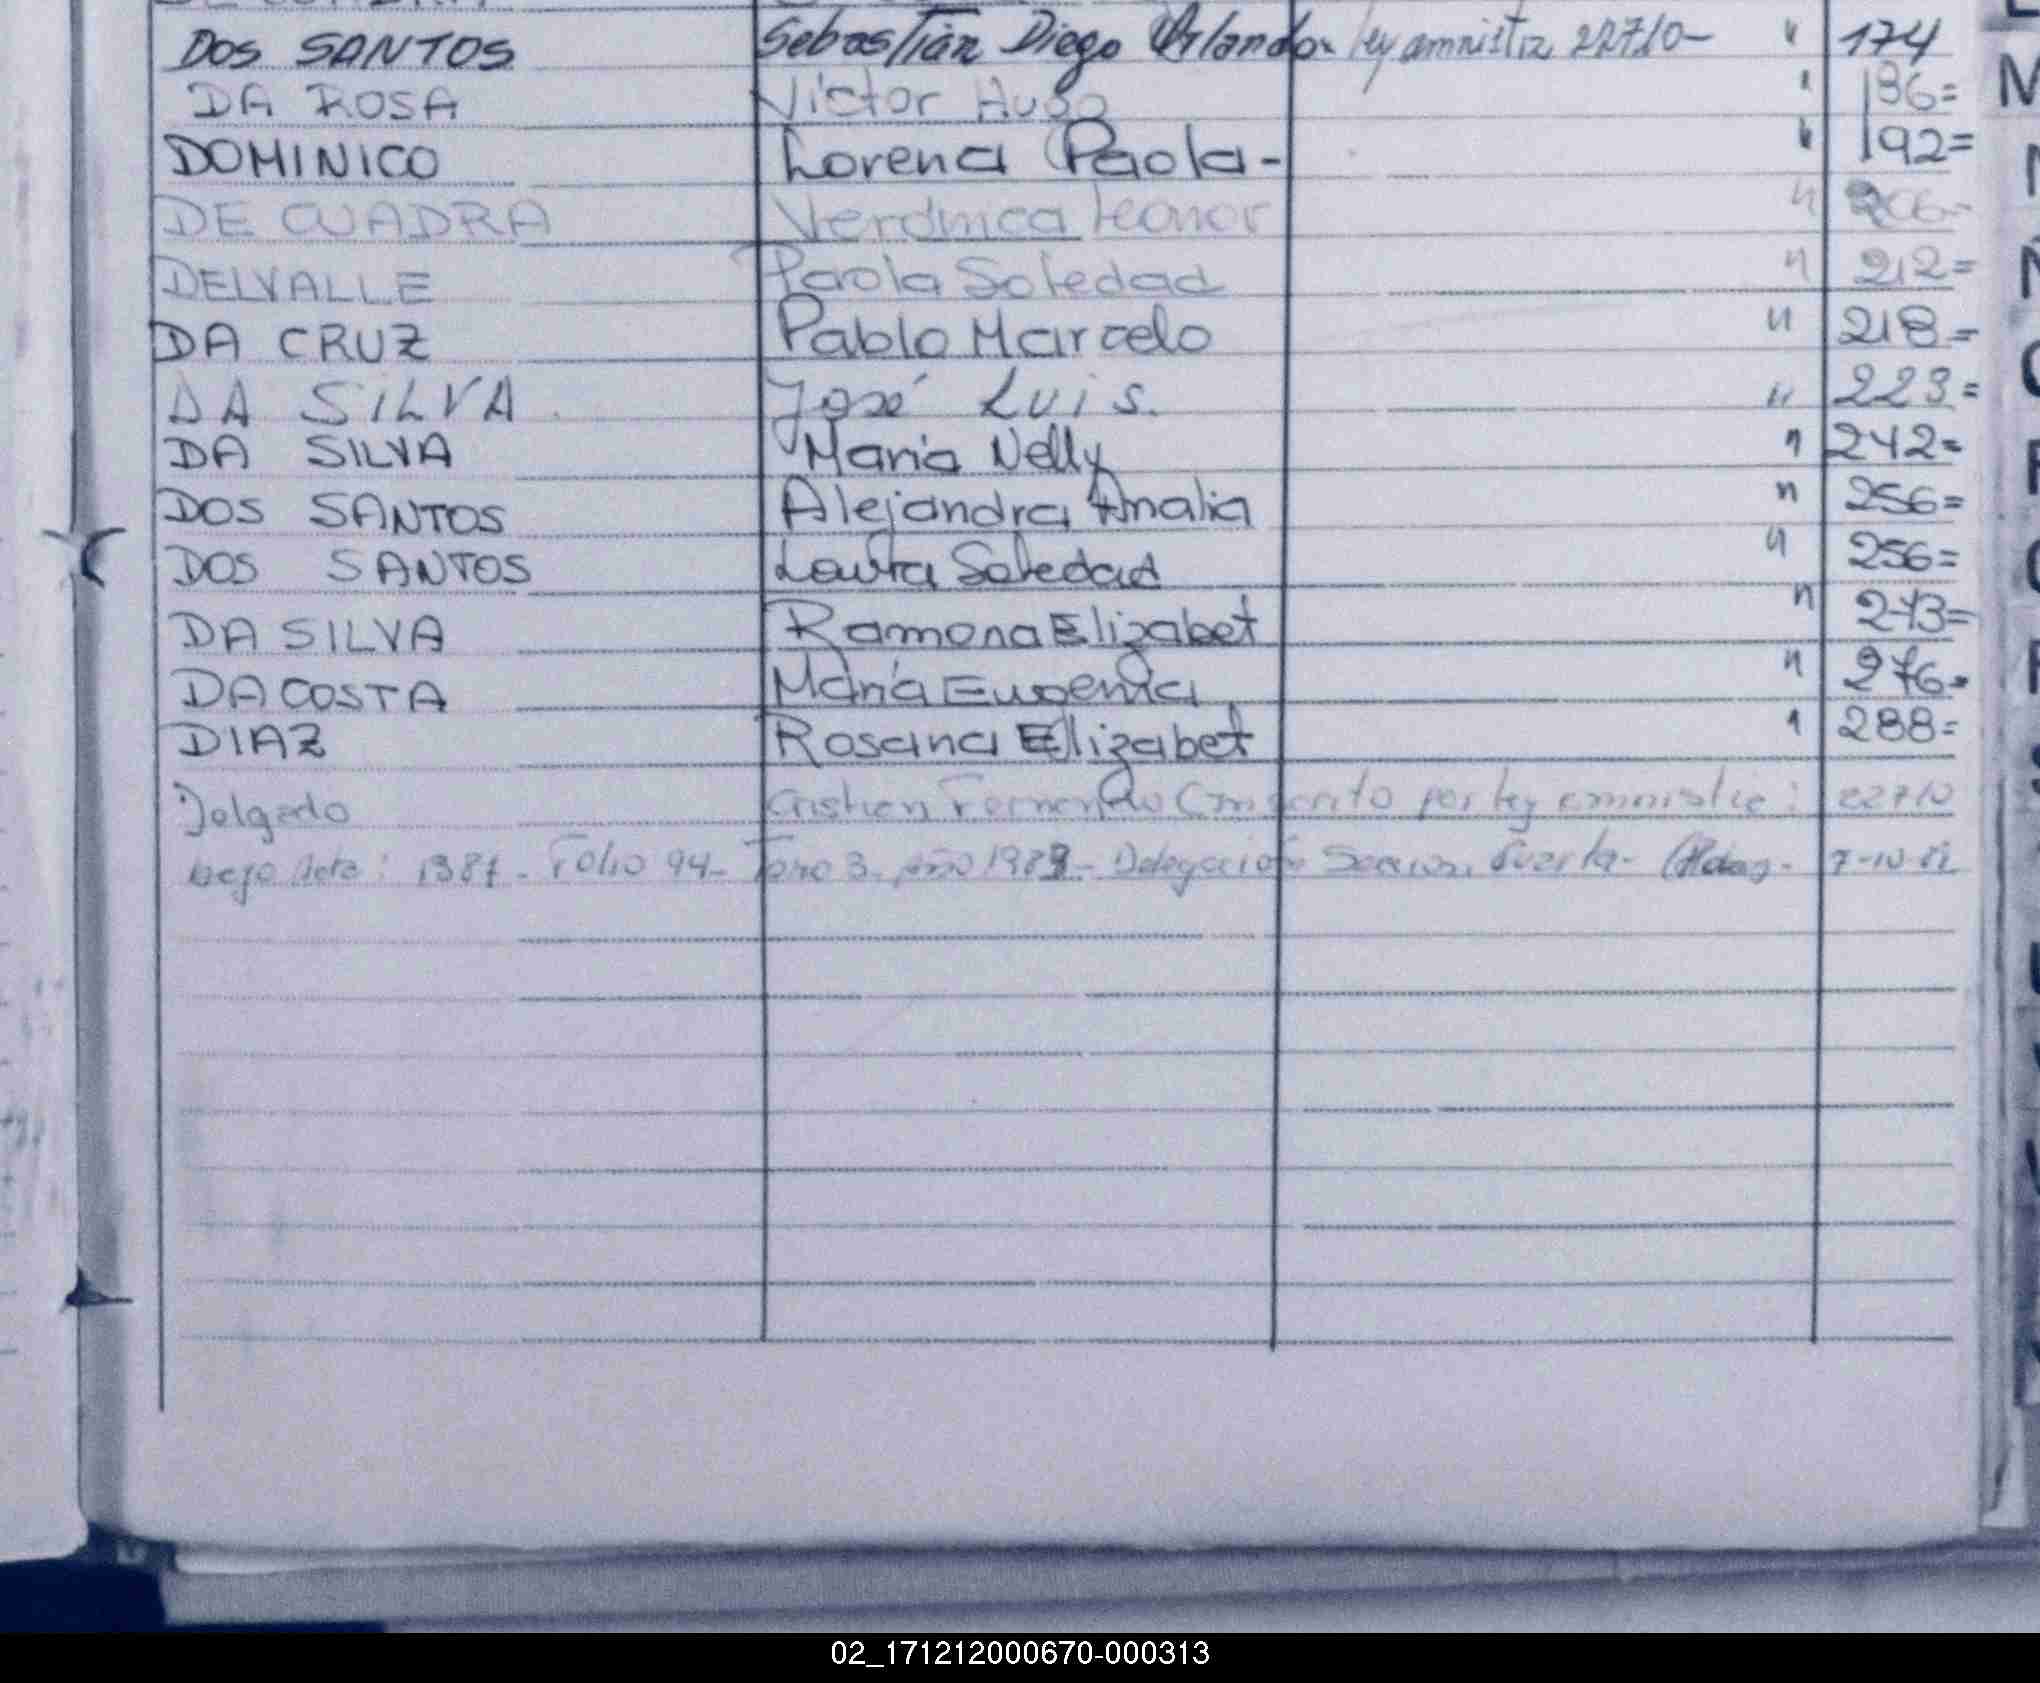 DOS SANTOS Sebastián Diego Orlando. ley amnistia 22710- " 174
DA ROSA Victor Hugo " 186=
DOMINICO Lorena Paola- " 192=
DE CUADRA Verónica Leonor " 206=
DELVALLE Paola Soledad " 212=
DA CRUZ Pablo Marcelo " 218=
DA SILVA José Luis. " 223=
DA SILVA Maria Nelly " 242=
DOS SANTOS Alejandra Analia " 256=
DOS SANTOS Laura Soledad " 256=
DA SILVA Ramona Elizabet " 273=
DA COSTA María Eugenia " 276=
DIAZ Rosana Elizabet " 288=
Delgado Cristian Fernando por ley amnistia: 22710
bajo Acta: 1387- Folio 94- Tomo 3- año 1983- Delegación Sección Cuarta- 7-10-82
02_171212000670-000313